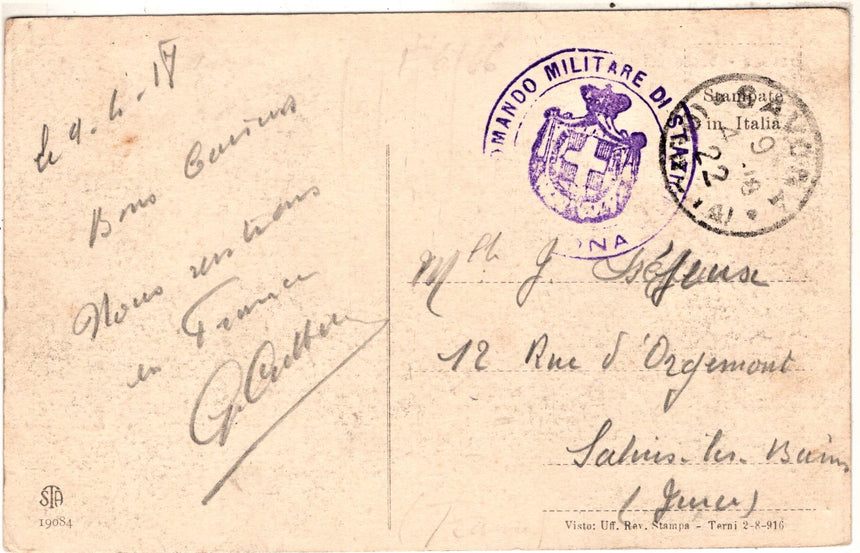 le 9-4-18
Bons Baisers
Nous rentrons
en France
COMANDO MILITARE DI STAZ
ONA
Stampate
in Italia
SAVONA
9 4 18
22
Mlle J.
12 Rue d'Orgemont
Salins-les-Bains
(Jura)
STA
19084
Visto: Uff. Rev. Stampa - Terni 2-8-916